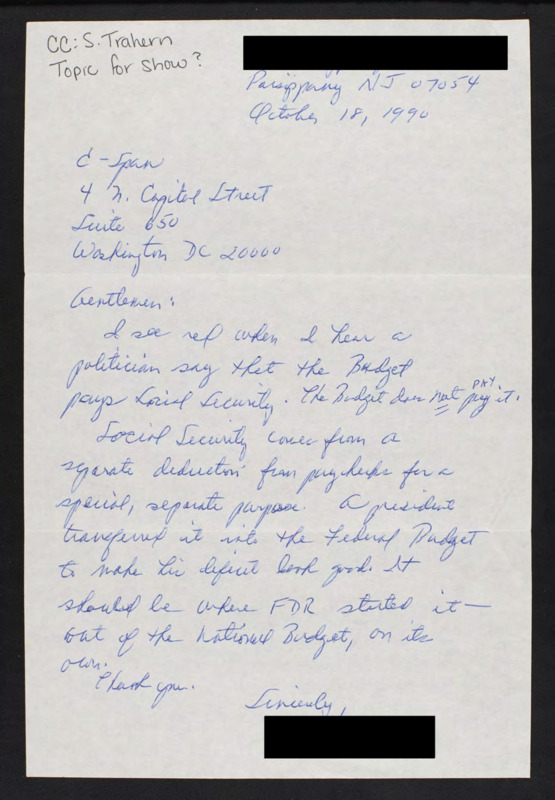 CC: S. Trahern
Topic for Show?
Parsippany NJ 07054
October 18, 1990
C-Span
4 N. Capitol Street
Suite 650
Washington DC 20000
Gentlemen:
I see red when I hear a
politician say that the Budget
pays Social Security. The Budget does not pay it.
PAY
Social Security comes from a
separate deduction from paychecks for a
special, separate purpose. A president
transferred it into the Federal Budget
to make his deficit look good. It
should be where FDR started it—
out of the National Budget, on its
own.
Thank you.
Sincerely,